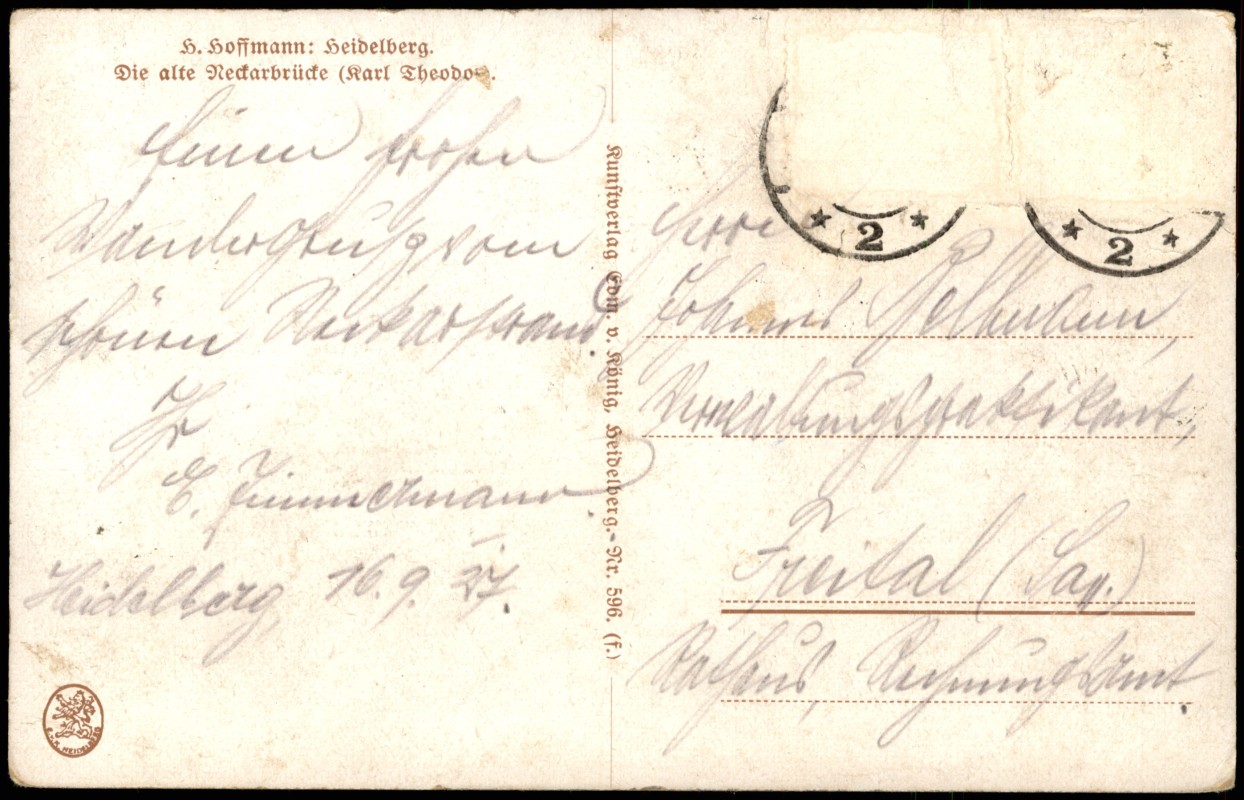 H. Hoffmann: Heidelberg.
Die alte Neckarbrücke (Karl Theodo
Einen frohen
Wandergruß vom
schönen Neckarstrand.
Ihr
E. Zimmermann.
Heidelberg, 16.9.27.
Kunstverlag Edm. v. König, Heidelberg.-Nr. 596. (f.)
2
2
Herrn
Johannes
Verwaltungspraktikant,
Freital (Sa.)
Rathaus, Rechnungsamt.
E.v.K. HEIDELBERG